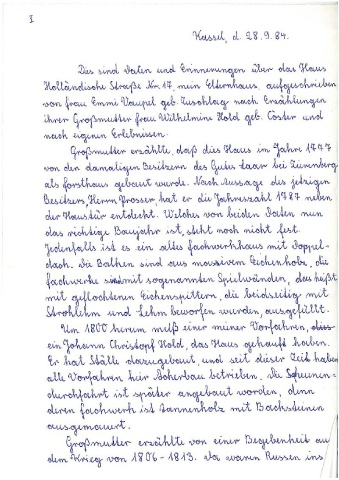 I
Kassel, d. 28.9.84.
Des sind Daten und Erinnerungen über das Haus
Holländische Straße Nr. 17, mein Elternhaus, aufgeschrieben
von Frau Emmi Vaupel geb. Zuschlag nach Erzählungen
ihrer Großmutter Frau Wilhelmine Hold geb. Cöster und
nach eigenen Erlebnissen.
Großmutter erzählte, daß dies Haus im Jahre 1747
von den damaligen Besitzern des Gutes Laar bei Zierenberg
als Forsthaus gebaut wurde. Nach Aussage des jetzigen
Besitzers, Herrn Prosser, hat er die Jahreszahl 1787 neben
der Haustür entdeckt. Welches von beiden Daten nun
das richtige Baujahr ist, steht noch nicht fest.
Jedenfalls ist es ein altes Fachwerkhaus mit Doppel-
dach. Die Balken sind aus massivem Eichenholz, die
Fachwerke sind mit sogenannten Spielwänden, das heißt
mit geflochtenen Eichensplittern, die beidseitig mit
Strohlehm und Lehm beworfen werden, ausgefüllt.
Um 1800 herum muß einer meiner Vorfahren,
ein Johann Christopf Hold, das Haus gekauft haben.
Er hat Ställe dazugebaut, und seit dieser Zeit haben
alle Vorfahren hier Ackerbau betrieben. Die Scheunen-
durchfahrt ist später angebaut worden, denn
deren Fachwerk ist Tannenholz mit Backsteinen
ausgemauert.
Großmutter erzählte von einer Begebenheit aus
dem Krieg von 1806-1813. Da waren Russen ins